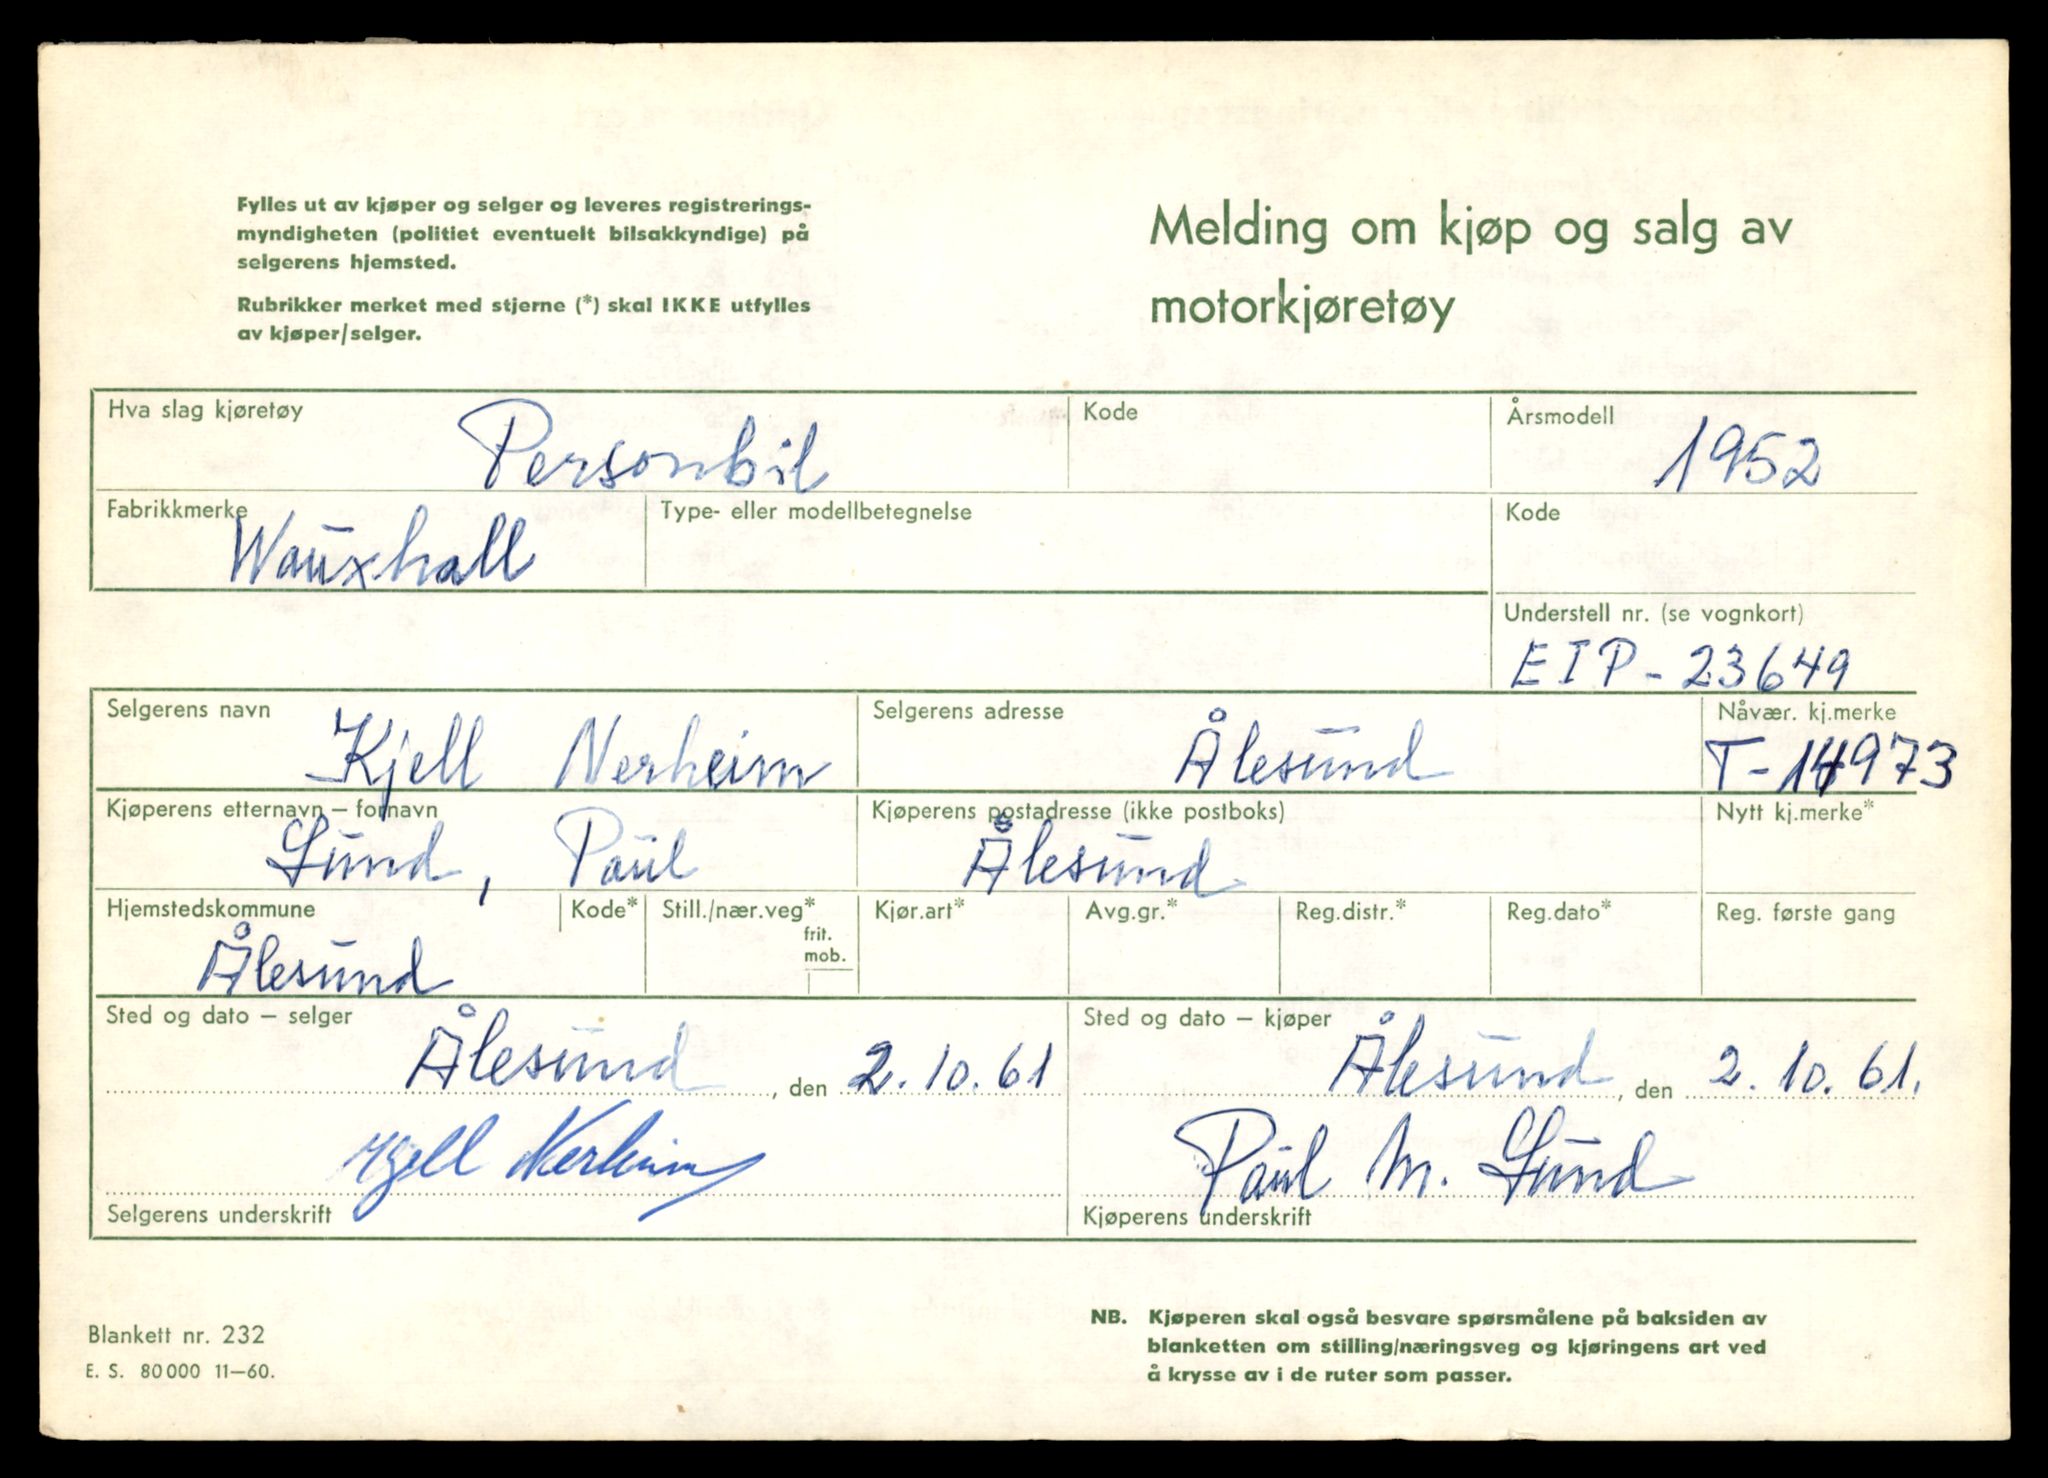 Fylles ut av kjøper og selger og leveres registrerings-
myndigheten (politiet eventuelt bilsakkyndige) på
selgerens hjemsted.
Rubrikker merket med stjerne (*) skal IKKE utfylles
av kjøper/selger.
Melding om kjøp og salg av
motorkjøretøy
Hva slag kjøretøy Personbil Kode Årsmodell 1952
Fabrikkmerke Wauxhall Type- eller modellbetegnelse Kode
Understell nr. (se vognkort)
EIP-23649
Selgerens navn Kjell Nerheim Selgerens adresse Ålesund Nåvær. kj.merke T-14973
Kjøperens etternavn – fornavn Lund, Paul Kjøperens postadresse (ikke postboks) Ålesund Nytt kj.merke*
Hjemstedskommune Ålesund Kode* Still./nær.veg* frit. mob. Kjør.art* Avg.gr.* Reg.distr.* Reg.dato* Reg. første gang
Sted og dato – selger Ålesund, den 2.10.61
Kjell Nerheim
Selgerens underskrift
Sted og dato – kjøper Ålesund, den 2.10.61.
Paul M. Lund
Kjøperens underskrift
Blankett nr. 232
E. S. 80000 11–60.
NB. Kjøperen skal også besvare spørsmålene på baksiden av
blanketten om stilling/næringsveg og kjøringens art ved
å krysse av i de ruter som passer.